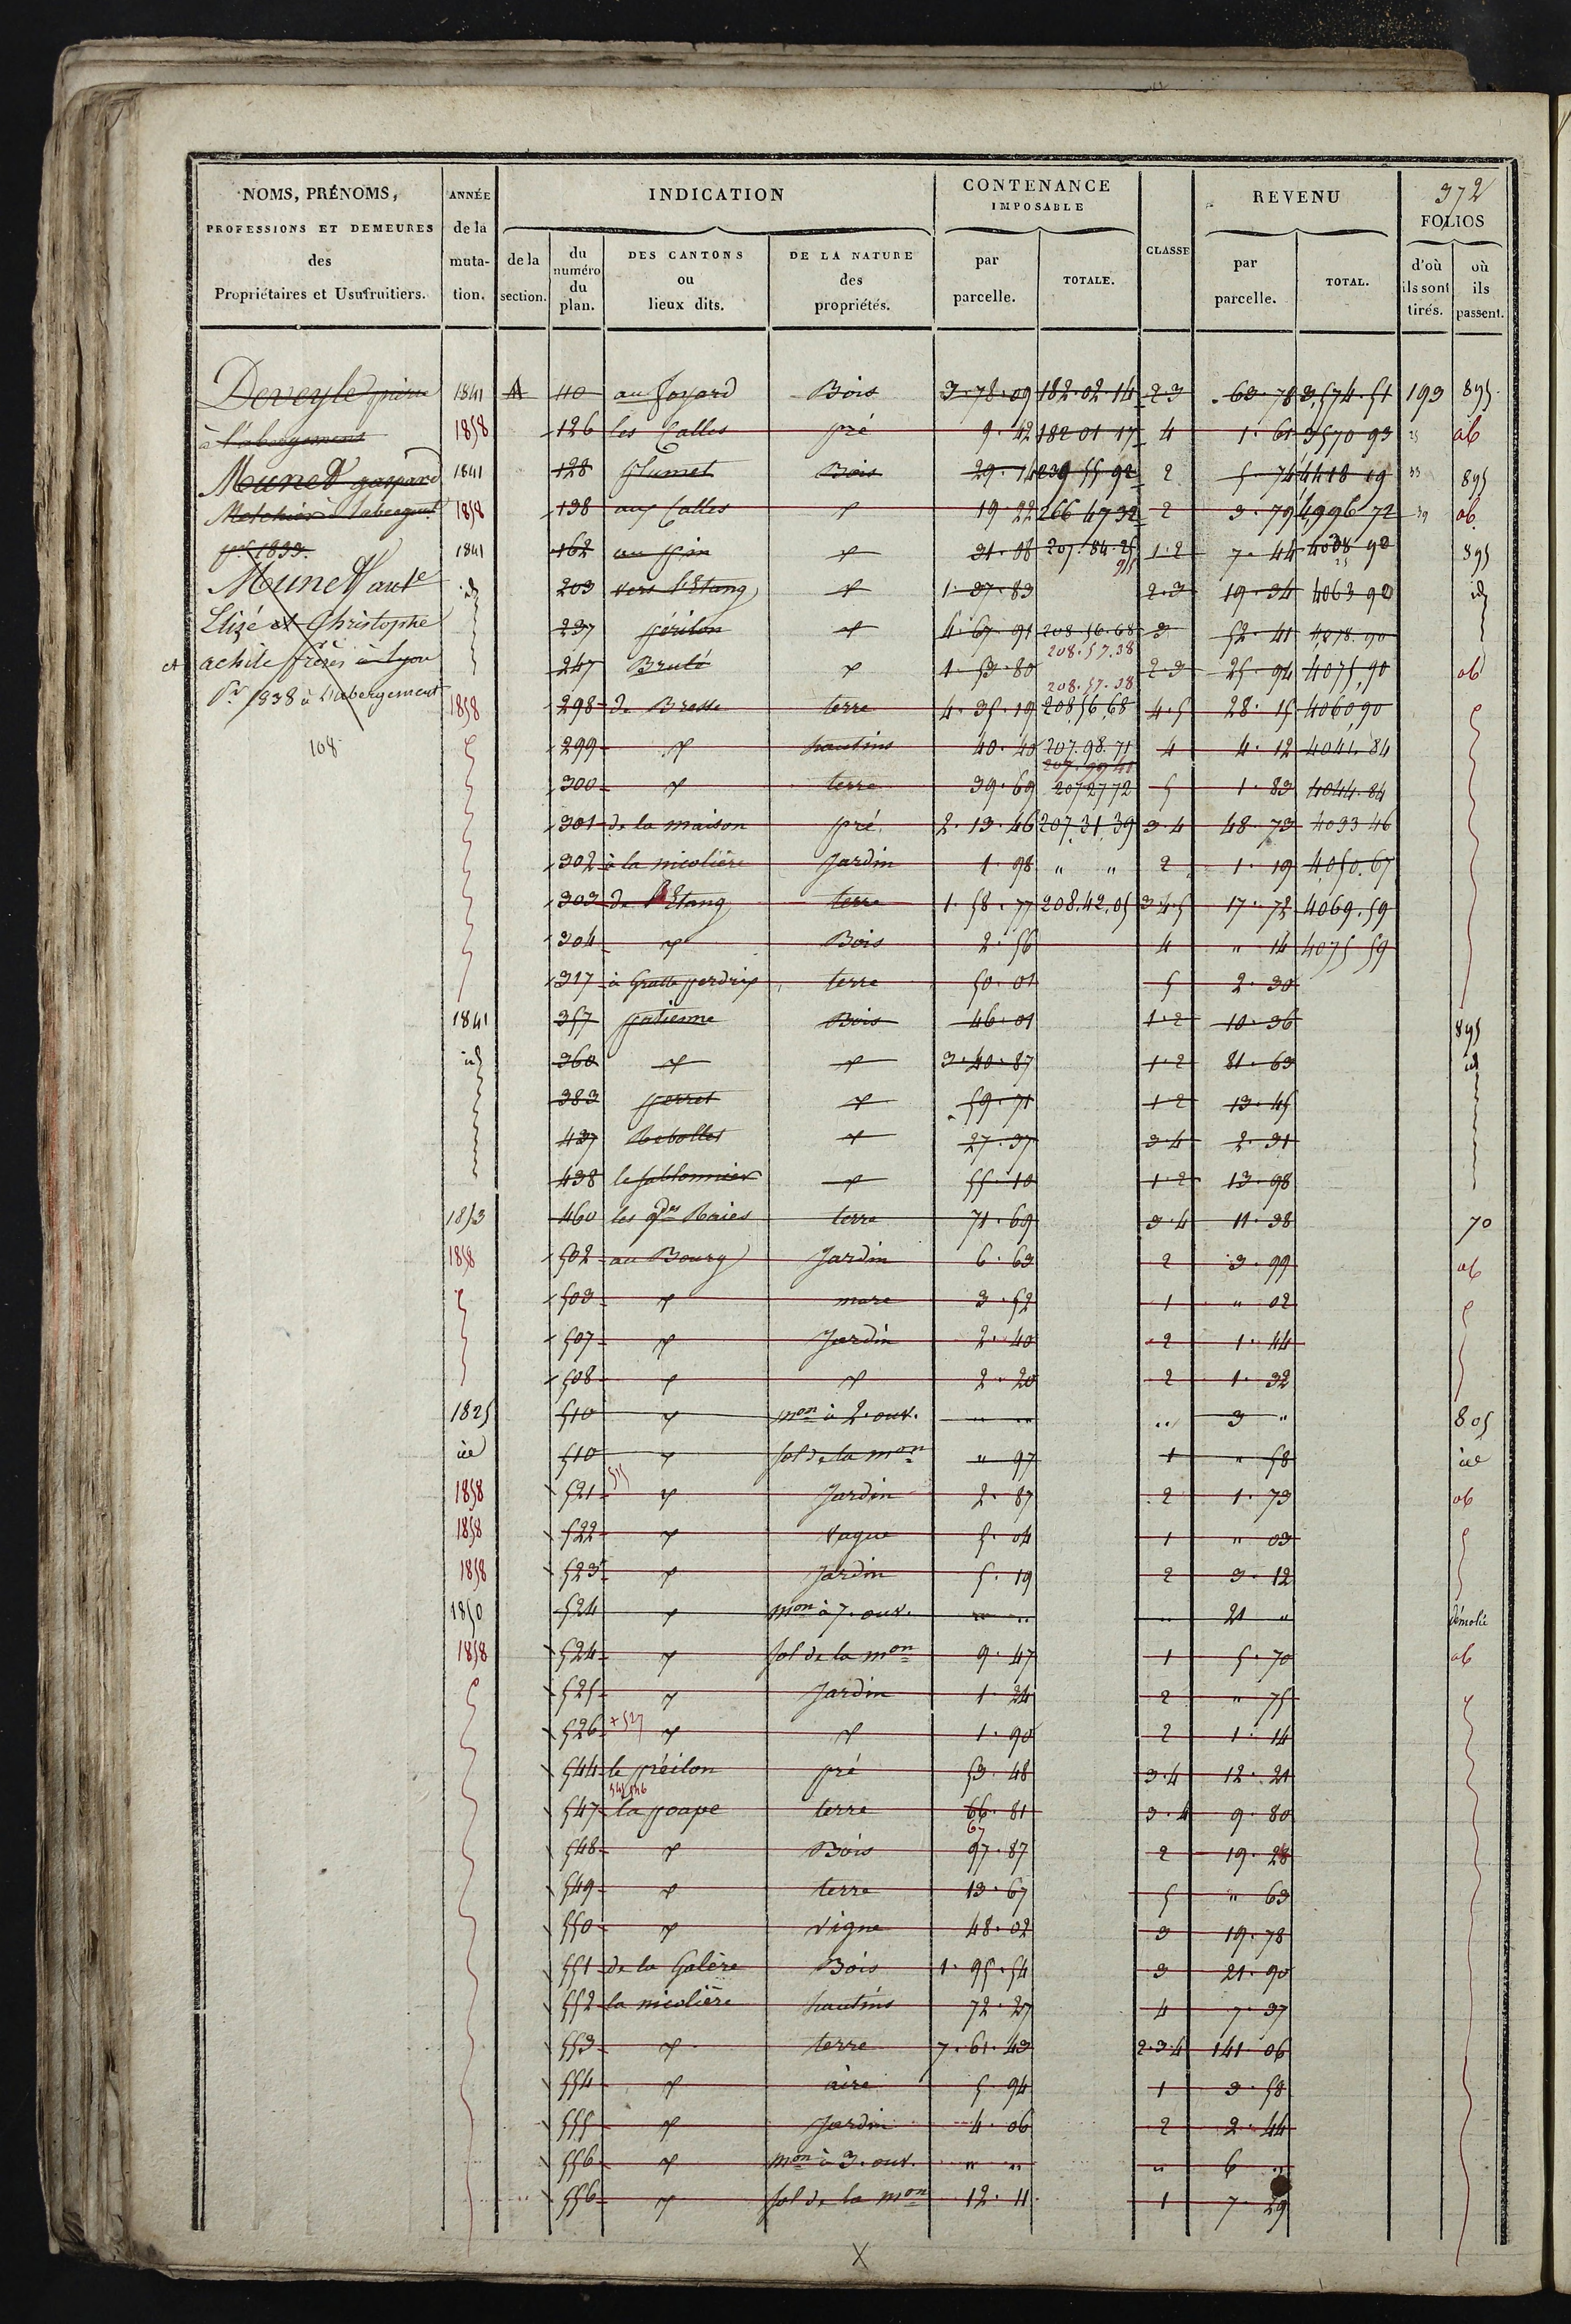 NOMS, PRÉNOMS, PROFESSIONS ET DEMEURES des Propriétaires et Usufruitiers.
ANNÉE de la mutation.
INDICATION
de la section.
du numéro du plan.
DES CANTONS ou lieux dits.
DE LA NATURE des propriétés.
CONTENANCE IMPOSABLE
par parcelle.
TOTALE.
CLASSE
REVENU
par parcelle.
TOTAL.
372
FOLIOS
d'où ils sont tirés.
où ils passent.
Deveyle pierre
à l'abergement
Munet gaspard
Melchior à l'abergmt
pr 1833.
Munet
Elizé et Christophe
et achile frères à Lyon
Pr 1838 à l'abergement
108
1841 A 110 au foyard Bois 3.78.09 182.02.14 2.3 63.78 3,574.51 193 895
1858 126 les Calles pré 9.42 182 01 17 4 1.61 3570 93 25 ab
1841 128 plumet Bois 29.14 239 55 92 2 5.74 4418 19 33 895
1858 138 aux Calles d° 19.22 266 47 32 2 3.79 4,996 72 39 ab
1841 162 au pin d° 31.08 207.84.25 1.2 7.44 4038 90 895
id 203 vers l'Etang d° 1.37.83 2.3 19.34 4063 90 id
237 périlon d° 4.67.91 208.56.68 3 52.41 4078.90
208.57.38
247 Brulé d° 1.53.80 2.3 25.94 4075.90 ab
208.57.38
1858 298 de Bresse terre 4.35.19 208,56,68 4.5 28.15 4060,90
299 d° hautins 40.40 207.98.71 4 4.12 4041.84
207.99 41
300 d° terre 39.69 207 27 72 5 1.83 4044.84
301 de la maison pré 2.13.46 207,31,39 3.4 48.73 4033 46
302 à la nicolière Jardin 1.98 " " 2 1.19 4,050.67
303 de l'Etang terre 1.58.77 208.42,05 3.4.5 17.72 4069.59
304 d° Bois 2.56 4 " 14 4075 59
317 à Gratte perdrix terre 50.01 5 2.30
1841 357 patienne Bois 46.01 1.2 10.36 895
id 360 d° d° 3.40.87 1.2 81.63 id
383 perret d° 59.71 1.2 13.45
437 Rebolles d° 27.37 3.4 2.31
438 le sablonnier d° 55.10 1.2 13.98
1853 460 les gdes Raies terre 71.69 3.4 11.38 70
1858 502 au Bourg Jardin 6.63 2 3.99 ab
503 d° mare 3.52 1 " 02
507 d° Jardin 2.40 2 1.44
508 d° d° 2.20 2 1.32
1825 510 d° mon à 2. ouv. " " " 3 " 805
id 510 d° sol de la mon " 97 1 " 58 id
1858 521 d° Jardin 2.87 2 1.73 ab
1858 522 d° vague 5.04 1 " 03
1858 523 d° Jardin 5.19 2 3.12
1850 524 d° mon à 7. ouv. " " " 21 " démolie
1858 524 d° sol de la mon 9.47 1 5.70 ab
525 d° Jardin 1.24 2 " 75
526 + 527 d° d° 1.90 2 1.14
544 le préilon pré 53.48 3.4 12.21
545 546
547 la poape terre 66.81 3.4 9.80
67
548 d° Bois 97.87 2 19.28
549 d° terre 13.67 5 " 63
550 d° vigne 48.02 3 19.78
551 de la Galère Bois 1.95.54 3 21.90
552 la nicolière hautins 72.27 4 7.37
553 d° terre 7.61.43 2.3.4 141.06
554 d° aire 5.94 1 3.58
555 d° Jardin 4.06 2 2.44
556 d° mon à 3. ouv. " " " 6 "
556 d° sol de la mon 12.11 1 7.29
X